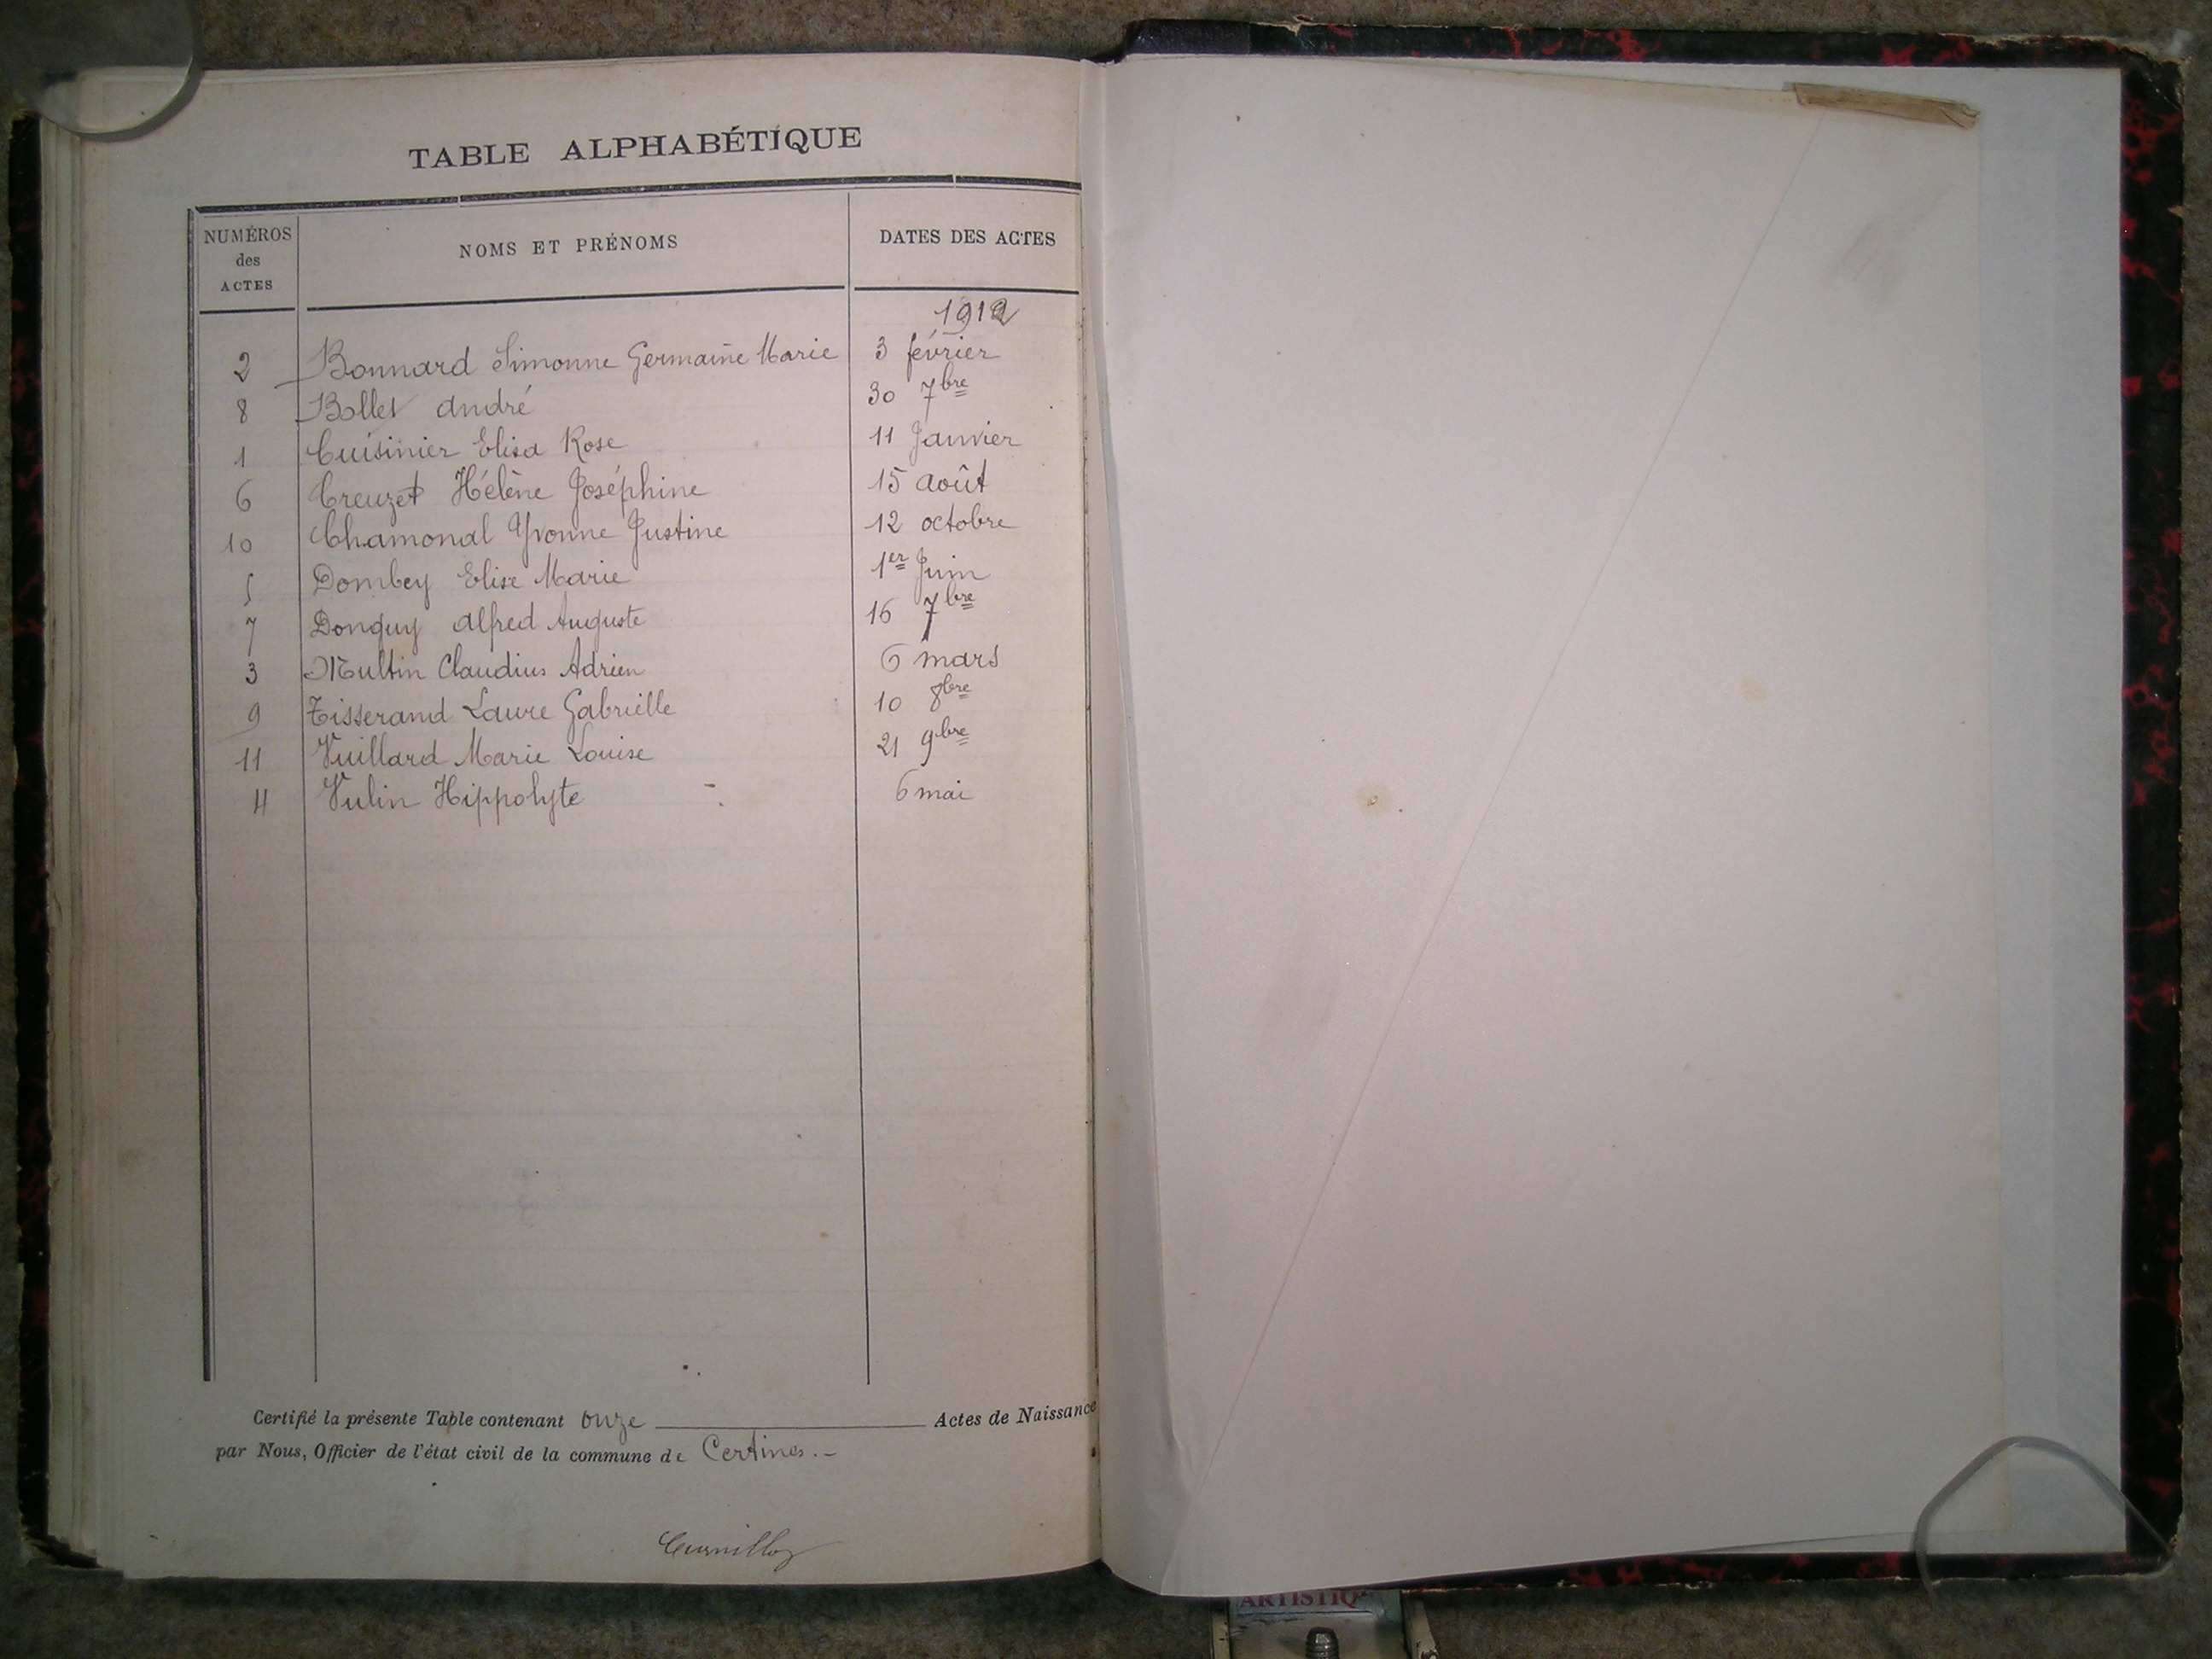 TABLE ALPHABÉTIQUE
NUMÉROS des ACTES NOMS ET PRÉNOMS DATES DES ACTES
1912
2 Bonnard Simonne Germaine Marie 3 février
8 Bollet andré 30 7bre
1 Cuisinier Elisa Rose 11 Janvier
6 Creuzet Hélène Joséphine 15 août
10 Chamonal Yvonne Justine 12 octobre
5 Dombey Elise Marie 1er Juin
7 Donguy alfred Auguste 16 7bre
3 Multin Claudius Adrien 6 mars
9 Tisserand Laure Gabrielle 10 8bre
11 Vuillard Marie Louise 21 9bre
4 Vulin Hippolyte 6 mai
Certifié la présente Table contenant onze Actes de Naissance
par Nous, Officier de l'état civil de la commune de Certines.-
ARTISTIQ